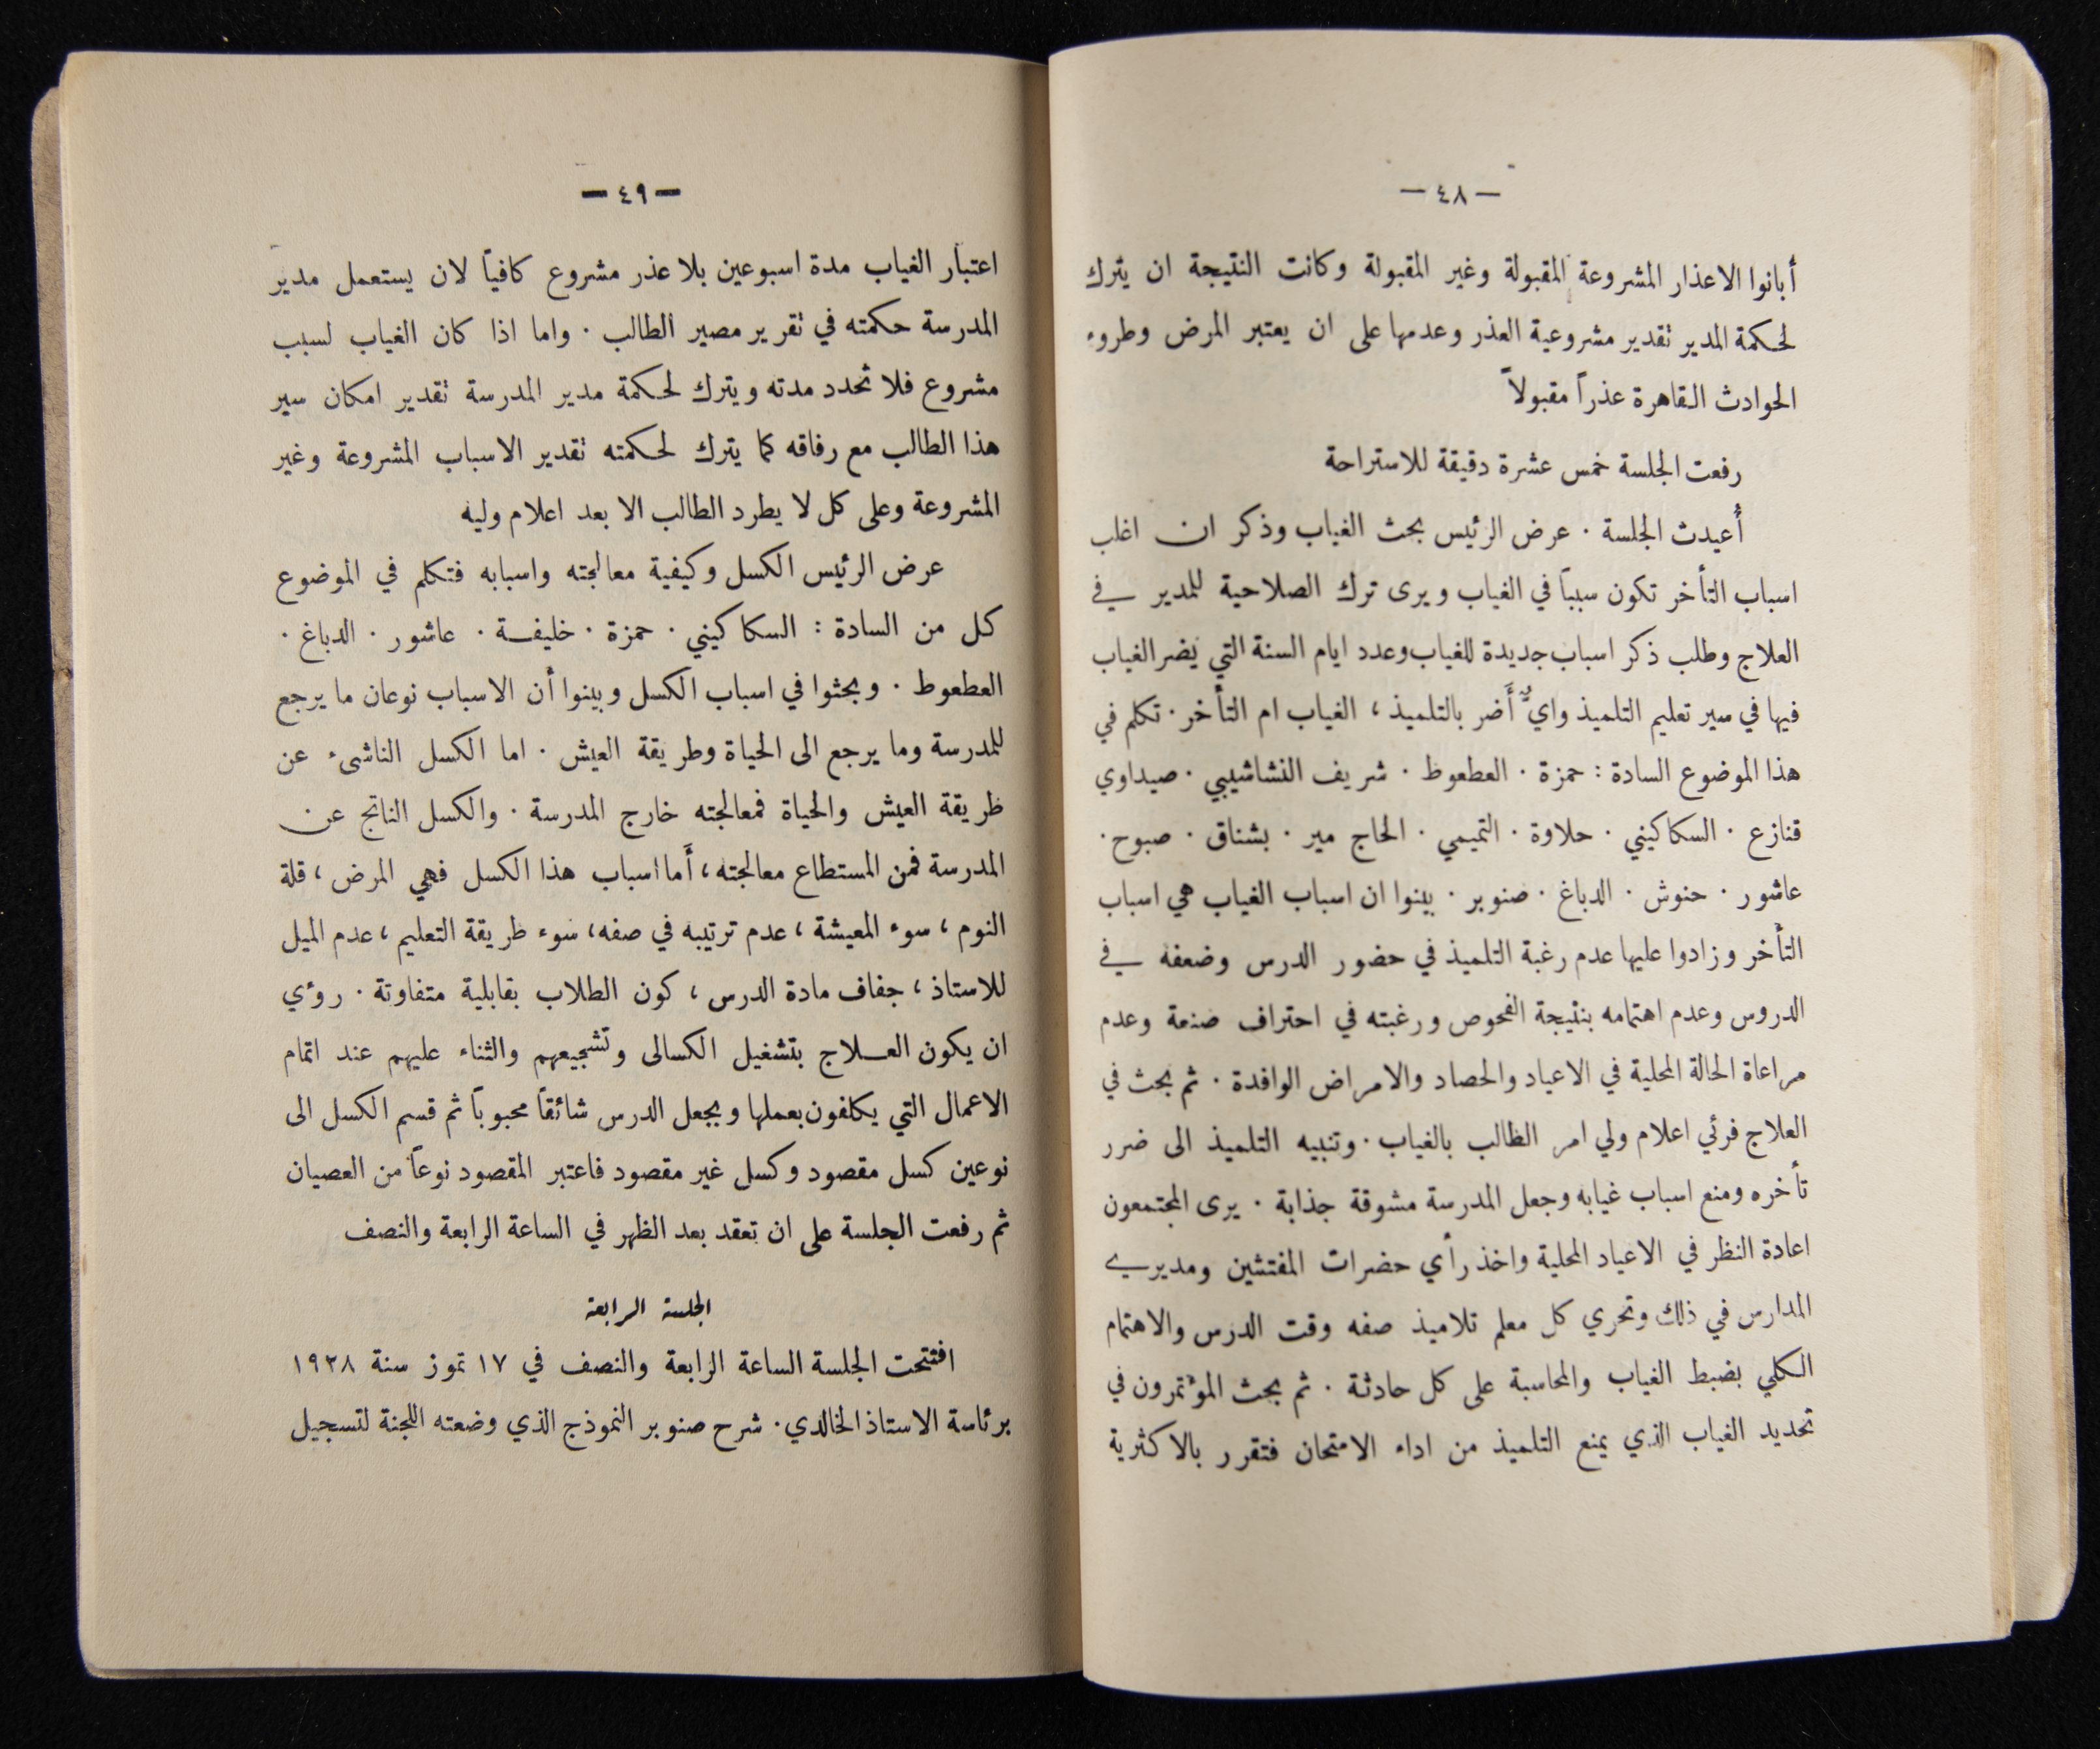 — ٤٨ —
أبانوا الاعذار المشروعة المقبولة وغير المقبولة وكانت النتيجة ان يترك
لحكمة المدير تقدير مشروعية العذر وعدمها على ان يعتبر المرض وطروء
الحوادث القاهرة عذراً مقبولاً
رفعت الجلسة خمس عشرة دقيقة للاستراحة
أُعيدت الجلسة . عرض الرئيس بحث الغياب وذكر ان اغلب
اسباب التأخر تكون سبباً في الغياب ويرى ترك الصلاحية للمدير في
العلاج وطلب ذكر اسباب جديدة للغياب وعدد ايام السنة التي يضر الغياب
فيها في سير تعليم التلميذ وايٌّ أَضر بالتلميذ ، الغياب ام التأخر . تكلم في
هذا الموضوع السادة : حمزة . العطعوط . شريف النشاشيبي . صيداوي
قنازع . السكاكيني . حلاوة . التميمي . الحاج مير . بشناق . صبوح .
عاشور . حنوش . الدباغ . صنوبر . بينوا ان اسباب الغياب هي اسباب
التأخر وزادوا عليها عدم رغبة التلميذ في حضور الدرس وضعفه في
الدروس وعدم اهتمامه بنتيجة الفحوص ورغبته في احتراف صنعة وعدم
مراعاة الحالة المحلية في الاعياد والحصاد والامراض الوافدة . ثم بحث في
العلاج فرئي اعلام ولي امر الطالب بالغياب . وتنبيه التلميذ الى ضرر
تأخره ومنع اسباب غيابه وجعل المدرسة مشوقة جذابة . يرى المجتمعون
اعادة النظر في الاعياد المحلية واخذ رأي حضرات المفتشين ومديري
المدارس في ذلك وتحري كل معلم تلاميذ صفه وقت الدرس والاهتمام
الكلي بضبط الغياب والمحاسبة على كل حادثة . ثم بحث المؤتمرون في
تحديد الغياب الذي يمنع التلميذ من اداء الامتحان فتقرر بالاكثرية
— ٤٩ —
اعتبار الغياب مدة اسبوعين بلا عذر مشروع كافياً لان يستعمل مدير
المدرسة حكمته في تقرير مصير الطالب . واما اذا كان الغياب لسبب
مشروع فلا تحدد مدته ويترك لحكمة مدير المدرسة تقدير امكان سير
هذا الطالب مع رفاقه كما يترك لحكمته تقدير الاسباب المشروعة وغير
المشروعة وعلى كل لا يطرد الطالب الا بعد اعلام وليه
عرض الرئيس الكسل وكيفية معالجته واسبابه فتكلم في الموضوع
كل من السادة : السكاكيني . حمزة . خليفة . عاشور . الدباغ .
العطعوط . وبحثوا في اسباب الكسل وبينوا أن الاسباب نوعان ما يرجع
للمدرسة وما يرجع الى الحياة وطريقة العيش . اما الكسل الناشىء عن
طريقة العيش والحياة فمعالجته خارج المدرسة . والكسل الناتج عن
المدرسة فمن المستطاع معالجته ، أَما اسباب هذا الكسل فهي المرض ، قلة
النوم ، سوء المعيشة ، عدم ترتيبه في صفه ، سوء طريقة التعليم ، عدم الميل
للاستاذ ، جفاف مادة الدرس ، كون الطلاب بقابلية متفاوتة . روءي
ان يكون العلاج بتشغيل الكسالى وتشجيعهم والثناء عليهم عند اتمام
الاعمال التي يكلفون بعملها وبجعل الدرس شائقاً محبوباً ثم قسم الكسل الى
نوعين كسل مقصود وكسل غير مقصود فاعتبر المقصود نوعاً من العصيان
ثم رفعت الجلسة على ان تعقد بعد الظهر في الساعة الرابعة والنصف
الجلسة الرابعة
افتتحت الجلسة الساعة الرابعة والنصف في ١٧ تموز سنة ١٩٢٨
برئاسة الاستاذ الخالدي . شرح صنوبر النموذج الذي وضعته اللجنة لتسجيل